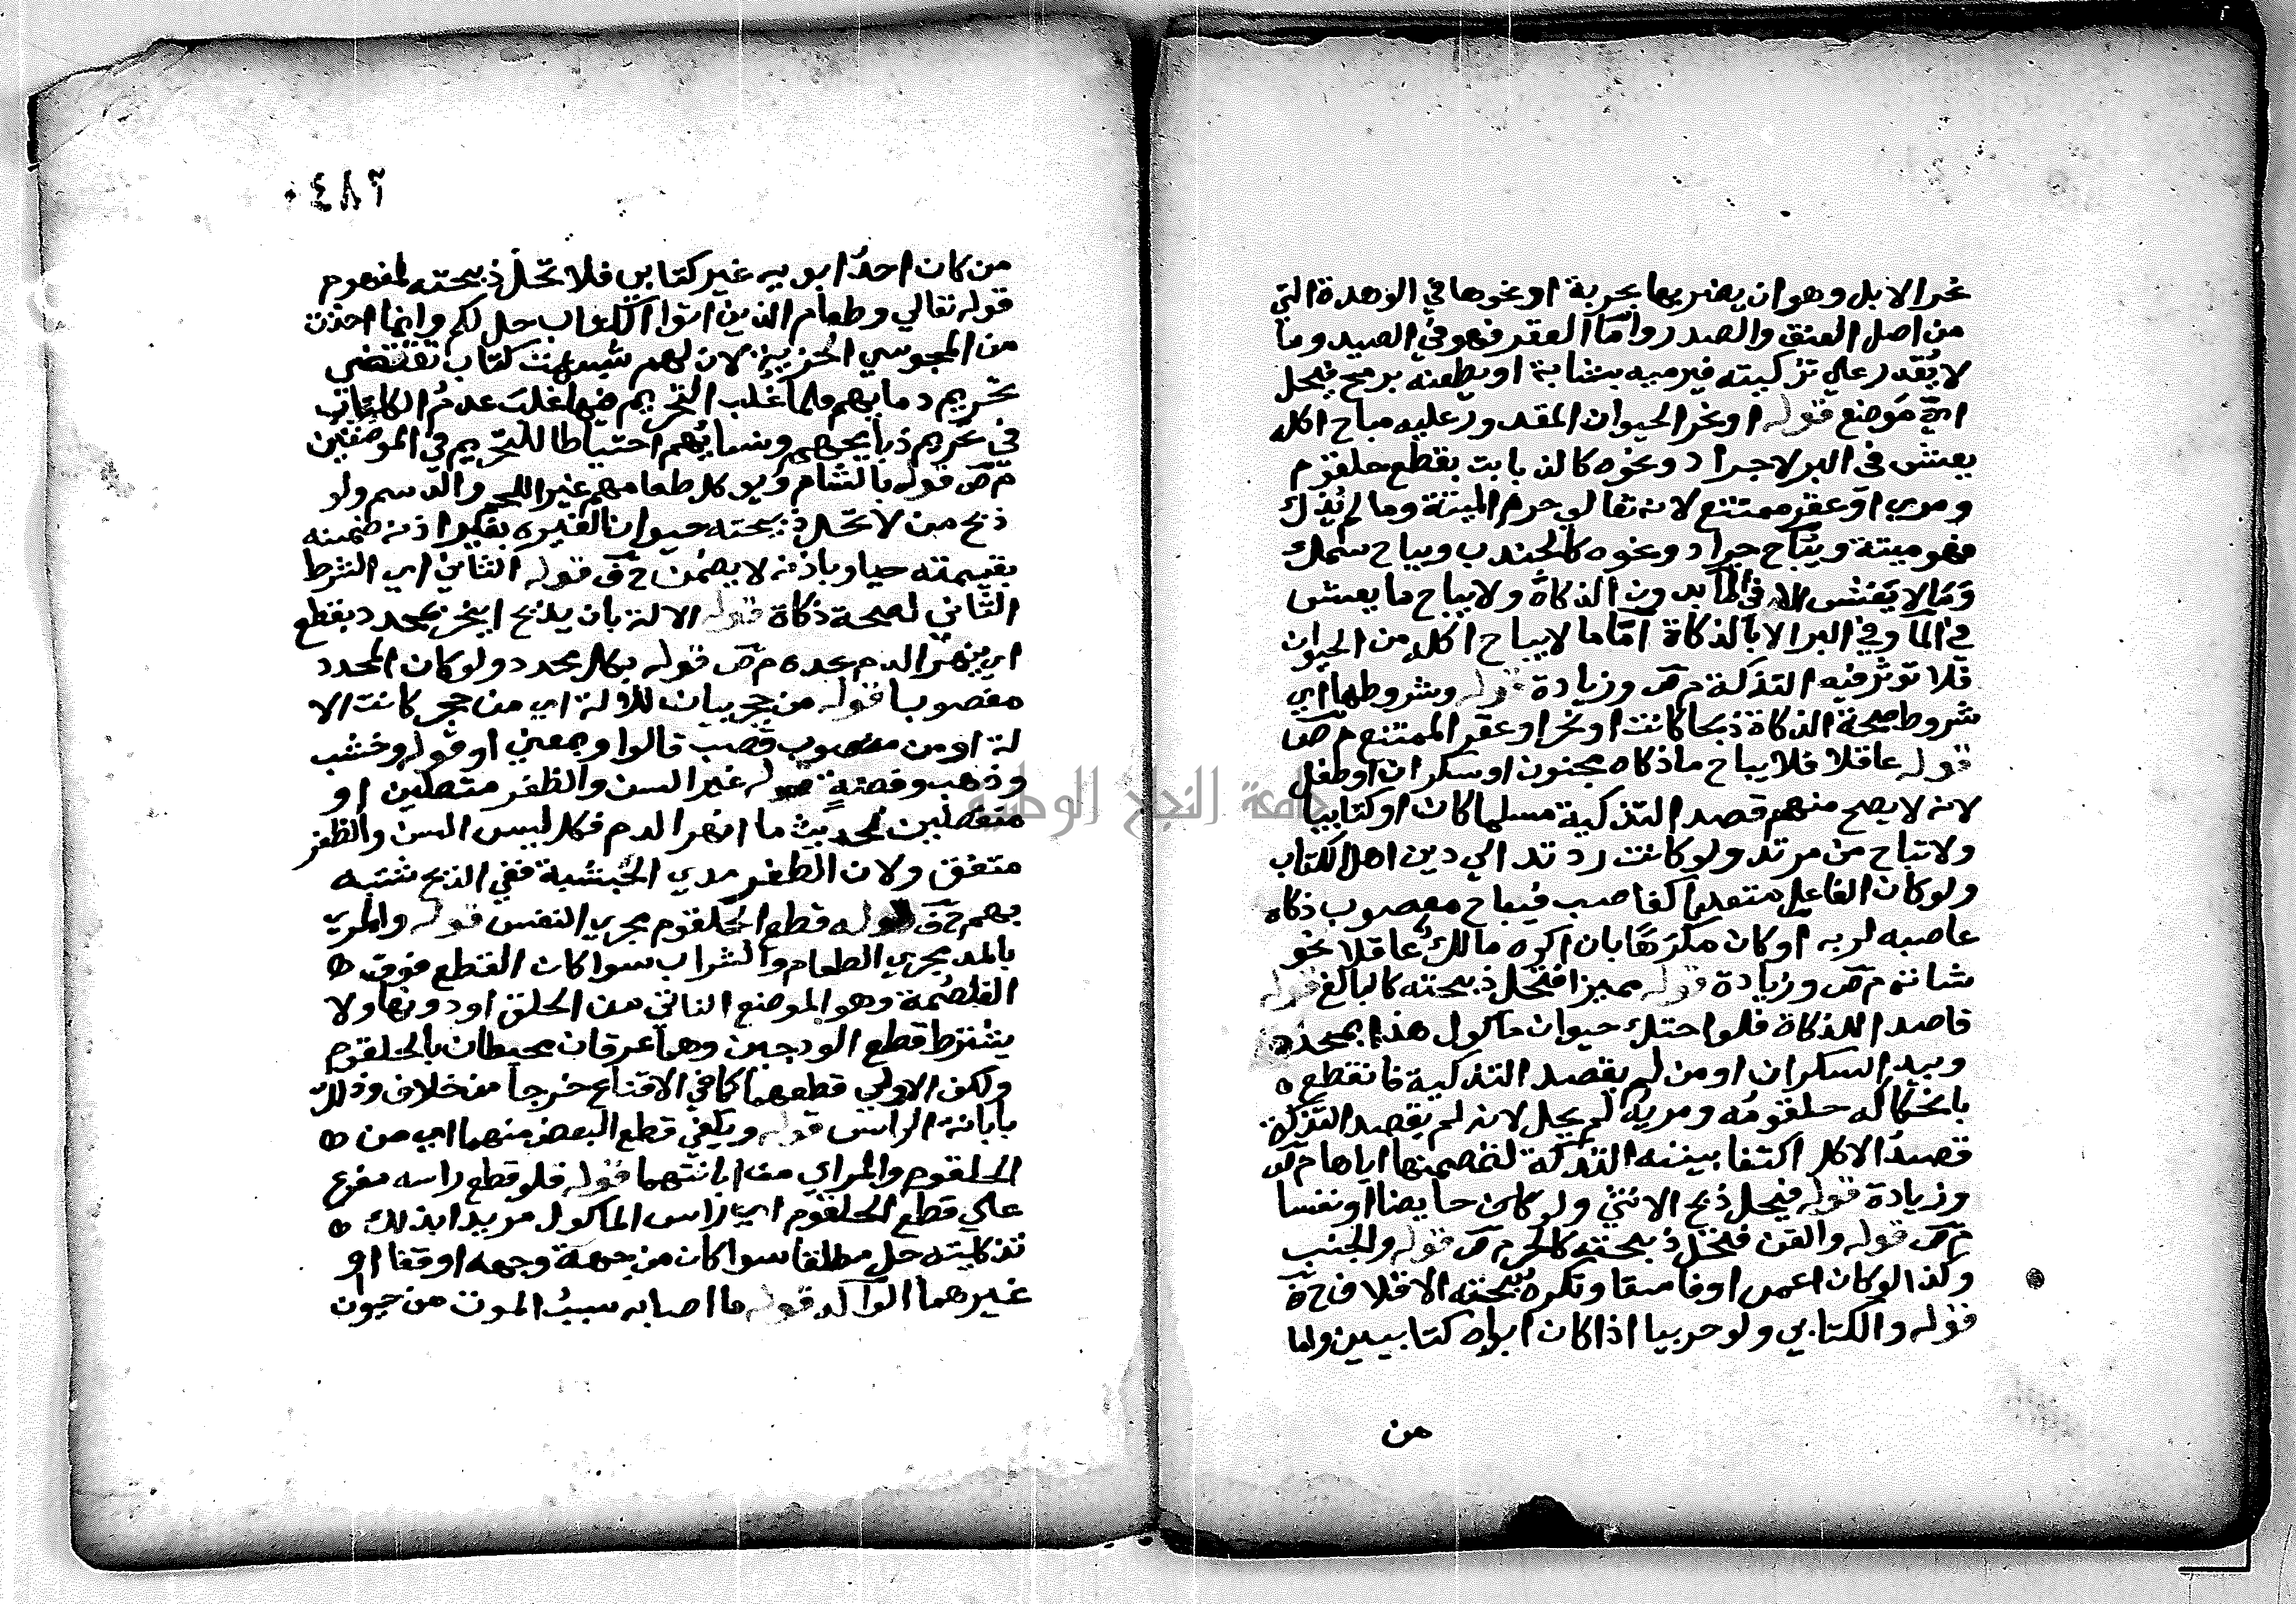 نحر الابل وهو ان يضربها بحربة او نحوها في الوهدة التي
من اصل العنق والصدر واما العقر فهو في الصيد وما
لا يُقدر علي تزكيته فيرميه بنشابة او يطعنه برمح فيحل
اي موضع قوله او نحر الحيوان المقدور عليه مباح اكله
يعيش في البر لا جراد ونحوه كالدبا بت بقطع حلقوم
ومري او عقر ممتنع لانه تعالي حرم الميتة وما لم يُذك
فهو ميتة ويباح جراد ونحوه كالجندب ويباح سمك
وما لا يعيش الا في الما بدون الذكاة ولا يباح ما يعيش
في الما وفي البر الا بالذكاة اما ما لا يباح اكله من الحيوان
فلا تؤثر فيه التذكة م ص وزيادة قوله وشروطها اي
شروط صحة الذكاة ذبحا كانت او نحرا او عقر الممتنع م ص
قوله عاقلا فلا يباح ما ذكاه مجنون او سكران او طفل
لانه لا يصح منهم قصد التذكية مسلما كان او كتابيا
ولا تباح من مرتد ولو كانت ردته الي دين اهل الكتاب
ولو كان الفاعل متعديا كغاصب فيباح مغصوب ذكاه
غاصبه لربه او كان مكرها بان اكره مالك عاقلا نحو
شاته م ص وزيادة قوله مميزا فتحل ذبيحته كالبالغ قوله
قاصد اللذكاة فلو احتك حيوان ماكول هذا بمحدد
وبيد السكران او من لم يقصد التذكية فانقطع ه
بانحكاكه حلقومه ومريه لم يحل لانه لم يقصد التذكة
قصد الاكل اكتفا بينيه التذكة لتضمنها اياها م ص
وزيادة قوله فيحل ذبح الانثي ولو كان حايضا او نفسا
م ص قوله والقن فتحل ذبيحته كالحر م ص قوله والجنب
وكذا لو كان اعمي او فاسقا وتكره ذبيحته الاقلاف ح ف
قوله والكتابي ولو حربيا اذا كان ابواه كتابيين واما
من
٢٨٤
من كان احدُ ابويه غير كتابي فلا تحل ذبيحته لمفهوم
قوله تعالي وطعام الذين اتوا الكتاب حل لكم وانما اخذت
من المجوسي الجزية لان لهم شبهت كتاب تقتضي
تحريم دمايهم فلما غُلب التحريم فيها غلب عدم الكتاب
في تحريم ذبايحهم ونسايهم احتياطا للتحريم في الموضعين
م ص قوله بالشام ويوكل طعامهم غير اللحم والدسم ولو
ذبح من لا تحل ذبيحته حيوانا لغيره بغير اذنه ضمنه
بقيمته حيا وباذنه لا يضمن ح ف قوله الثاني اي الشرط
الثاني لصحة ذكاة قوله الالة بان يذبح اينحر بمحدد بقطع
اي ينهر الدم بحده م ص قوله بكل محدد ولو كان المحدد
مغصوبا قوله من حجر بيان للالة اي من حجر كانت الا
لة او من قصب قالوا وبمعني او قوله وخشب
وذهب وفضة قوله غير السن والظفر متصلين او
منفصلين لحديث ما انهر الدم فكل ليس السن والظفر
متفق ولان الظفر مدي الحبشة ففي الذبح تشبه
بهم ح ف قوله قطع الحلقوم مجري النفس قوله والمري
بالمد مجري الطعام والشراب سوا كان القطع فوق ه
الغلصمة وهو الموضع الناتي من الحلق او دونها ولا
يشترط قطع الودجين وهما عرقان محيطان بالحلقوم
ولكن الاولي قطعهما كما في الاقناع خرجا من خلاف وذلك
بابانة الراس قوله ويكفي قطع البعض منهما اي من ه
الحلقوم والمراي من ابانتهما قوله فلو قطع راسه مفرع
علي قطع الحلقوم اي راس الماكول مريدا بذلك ه
تذكيته حل مطلقا سوا كان من جهة وجهه او قفا او
غيرهما قوله ما اصابه سببُ الموت من حيون
جامعة النجاح الوطنية